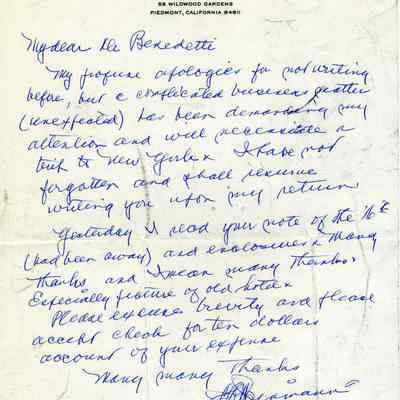 55 WILDWOOD GARDENS
PIEDMONT, CALIFORNIA 94611
My dear De Benedetti
My profuse apologies for not writing
before, but a complicated business matter
(unexpected) has been demanding my
attention and will necessitate a
trip to New York. I have not
forgotten and shall resume
writing you upon my return
Yesterday I read your note of the 16th
(had been away) and enclosures. Many
thanks and I mean many thanks.
Especially picture of old hotel.
Please excuse brevity and please
accept check for ten dollars
account of your expense
Many many thanks